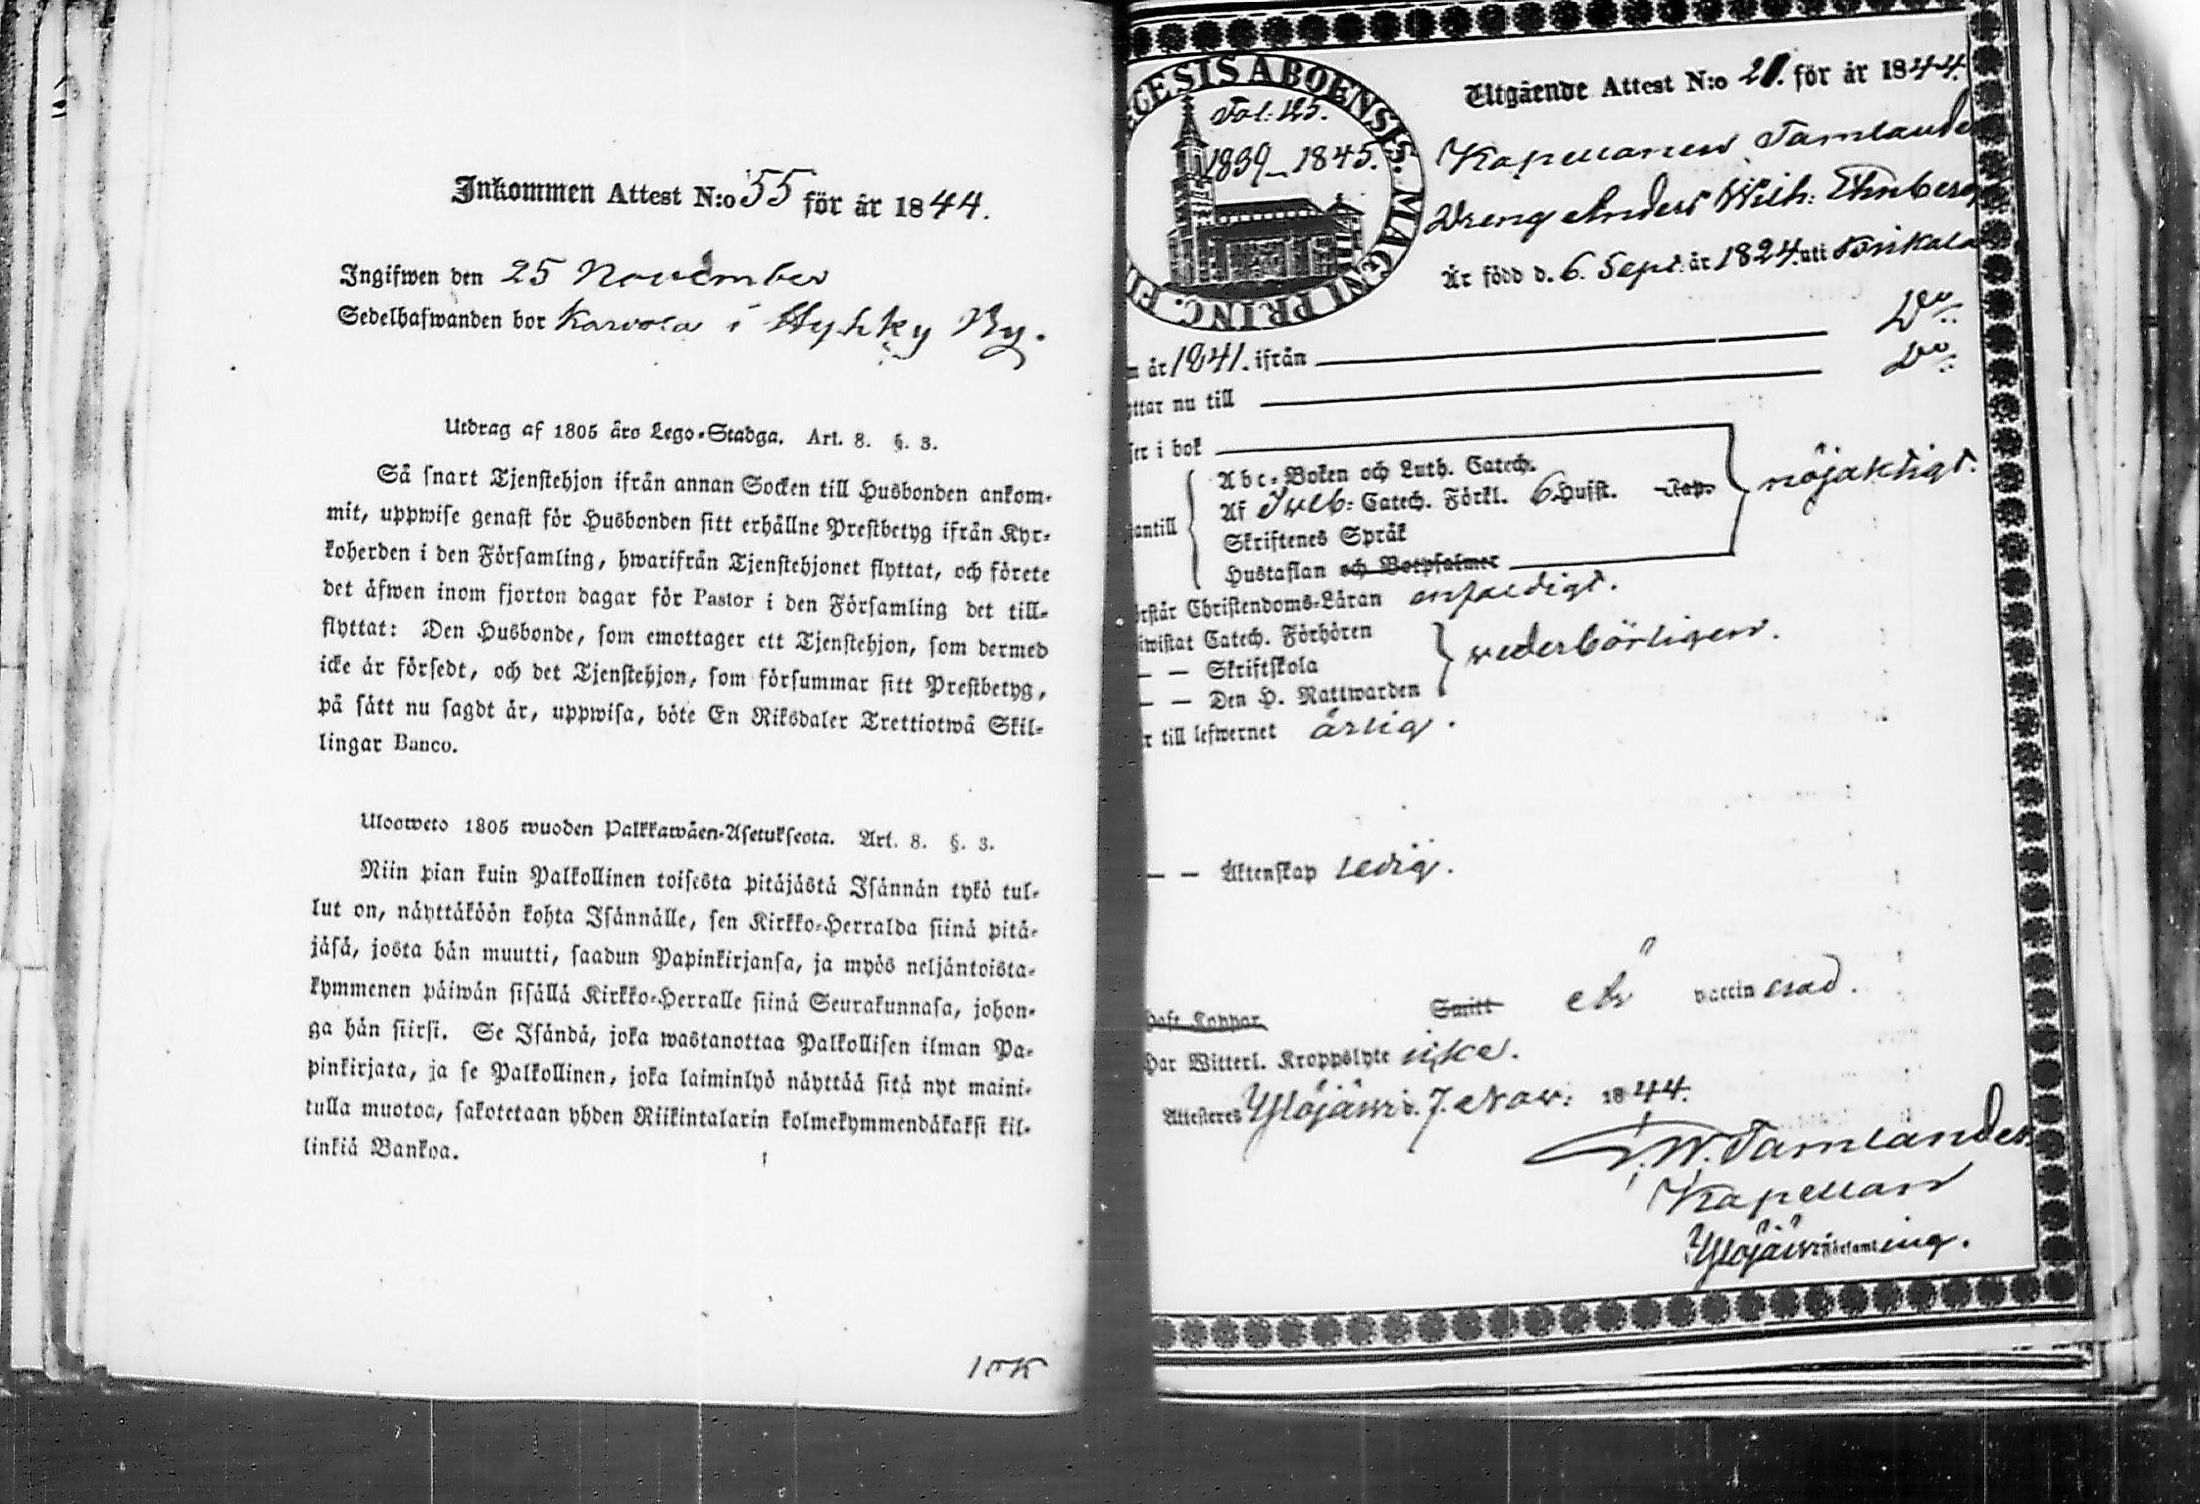 Inkommen Attest N:o 55 för år 1844.
Ingifwen den 25 November
Sedelhafwanden bor Karvola i Hyhky By.
Utdrag af 1805 års Lego-Stadga. Art. 8. §. 3.
Så snart Tjenstehjon ifrån annan Socken till Husbonden ankom-
mit, uppwise genast för Husbonden sitt erhållne Prestbetyg ifrån Kyr-
koherden i den Församling, hwarifrån Tjenstehjonet flyttat, och förete
det äfwen inom fjorton dagar för Pastor i den Församling det till-
flyttat: Den Husbonde, som emottager ett Tjenstehjon, som dermed
icke är försedt, och det Tjenstehjon, som försummar sitt Prestbetyg,
på sätt nu sagdt är, uppwisa, böte En Riksdaler Trettiotwå Skil-
lingar Banco.
Ulosweto 1805 wuoden Palkkawäen-Asetuksesta. Art. 8. §. 3.
Niin pian kuin Palkollinen toisesta pitäjästä Isännän tykö tul-
lut on, näyttäköön kohta Isännälle, sen Kirkko-Herralda siinä pitä-
jäsä, josta hän muutti, saadun Papinkirjansa, ja myös neljäntoista-
kymmenen päiwän sisällä Kirkko-Herralle siinä Seurakunnasa, johon-
ga hän siirsi. Se Isändä, joka wastanottaa Palkollisen ilman Pa-
pinkirjata, ja se Palkollinen, joka laiminlyö näyttää sitä nyt maini-
tulla muotoa, sakotetaan yhden Riikintalarin kolmekymmendäkaksi kil-
linkiä Bankoa.
ŒCESIS ABOENSIS. MAGNI PRINC. FI
Fol: 125.
1839–1845.
Utgående Attest N:o 21. för år 1844.
Kapellanen Tamlande
Dreng Anders Wilh: Ehnberg
Är född d. 6. Sept. år 1824. uti Birikala
n år 1841. ifrån Do.
ttar nu till Do.
ser i bok
antill
Abc-Boken och Luth. Catech.
Af Sveb: Catech. Förkl. 6 Hufst. Kap.
Skriftenes Språk
Hustaflan och Botpsalmer
nöjaktigt.
rstår Christendoms-Läran enfaldigt.
iwistat Catech. Förhören
— — Skriftskola
— — Den H. Nattwarden
vederbörligen.
r till lefwernet ärlig.
— — Äktenskap ledig.
Haft Koppor Smitt Är vaccinerad.
Har Witterl. Kroppslyte icke.
Attesteres Ylöjärvi d. 7. Nov: 1844.
W. Tamlander
Kapellan
Ylöjärvi Församling.